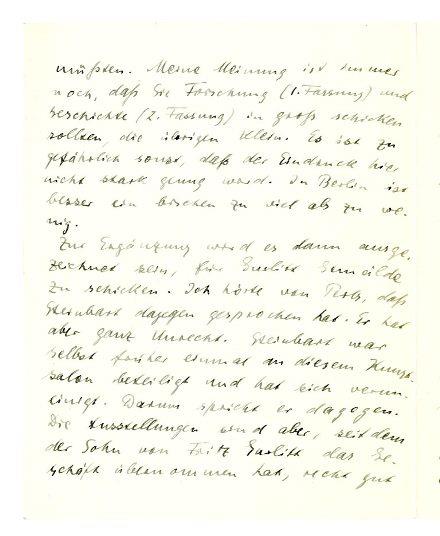 müßten. Meine Meinung ist immer
noch, daß Sie Forschung (1. Fassung) und
Geschichte (2. Fassung) in groß schicken
sollten, die übrigen klein. Es ist zu
gefährlich sonst, daß der Eindruck hier
nicht stark genug wird. In Berlin ist
besser ein bischen zu viel als zu we-
nig.
Zur Ergänzung wird es dann ausge-
zeichnet sein, für Gurlitt Gemälde
zu schicken. Ich hörte von Perls, daß
Steinbart dagegen gesprochen hat. Er hat
aber ganz Unrecht. Steinbart war
selbst früher einmal an diesem Kunst-
salon beteiligt und hat sich verun-
einigt. Darum spricht er dagegen.
Die Ausstellungen sind aber, seitdem
der Sohn von Fritz Gurlitt das Ge-
schäft übernommen hat, recht gut